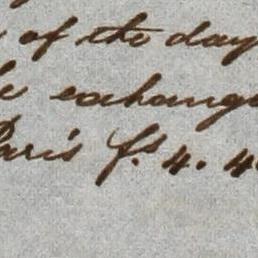 of the day
exchange
Paris fs. 4. 4